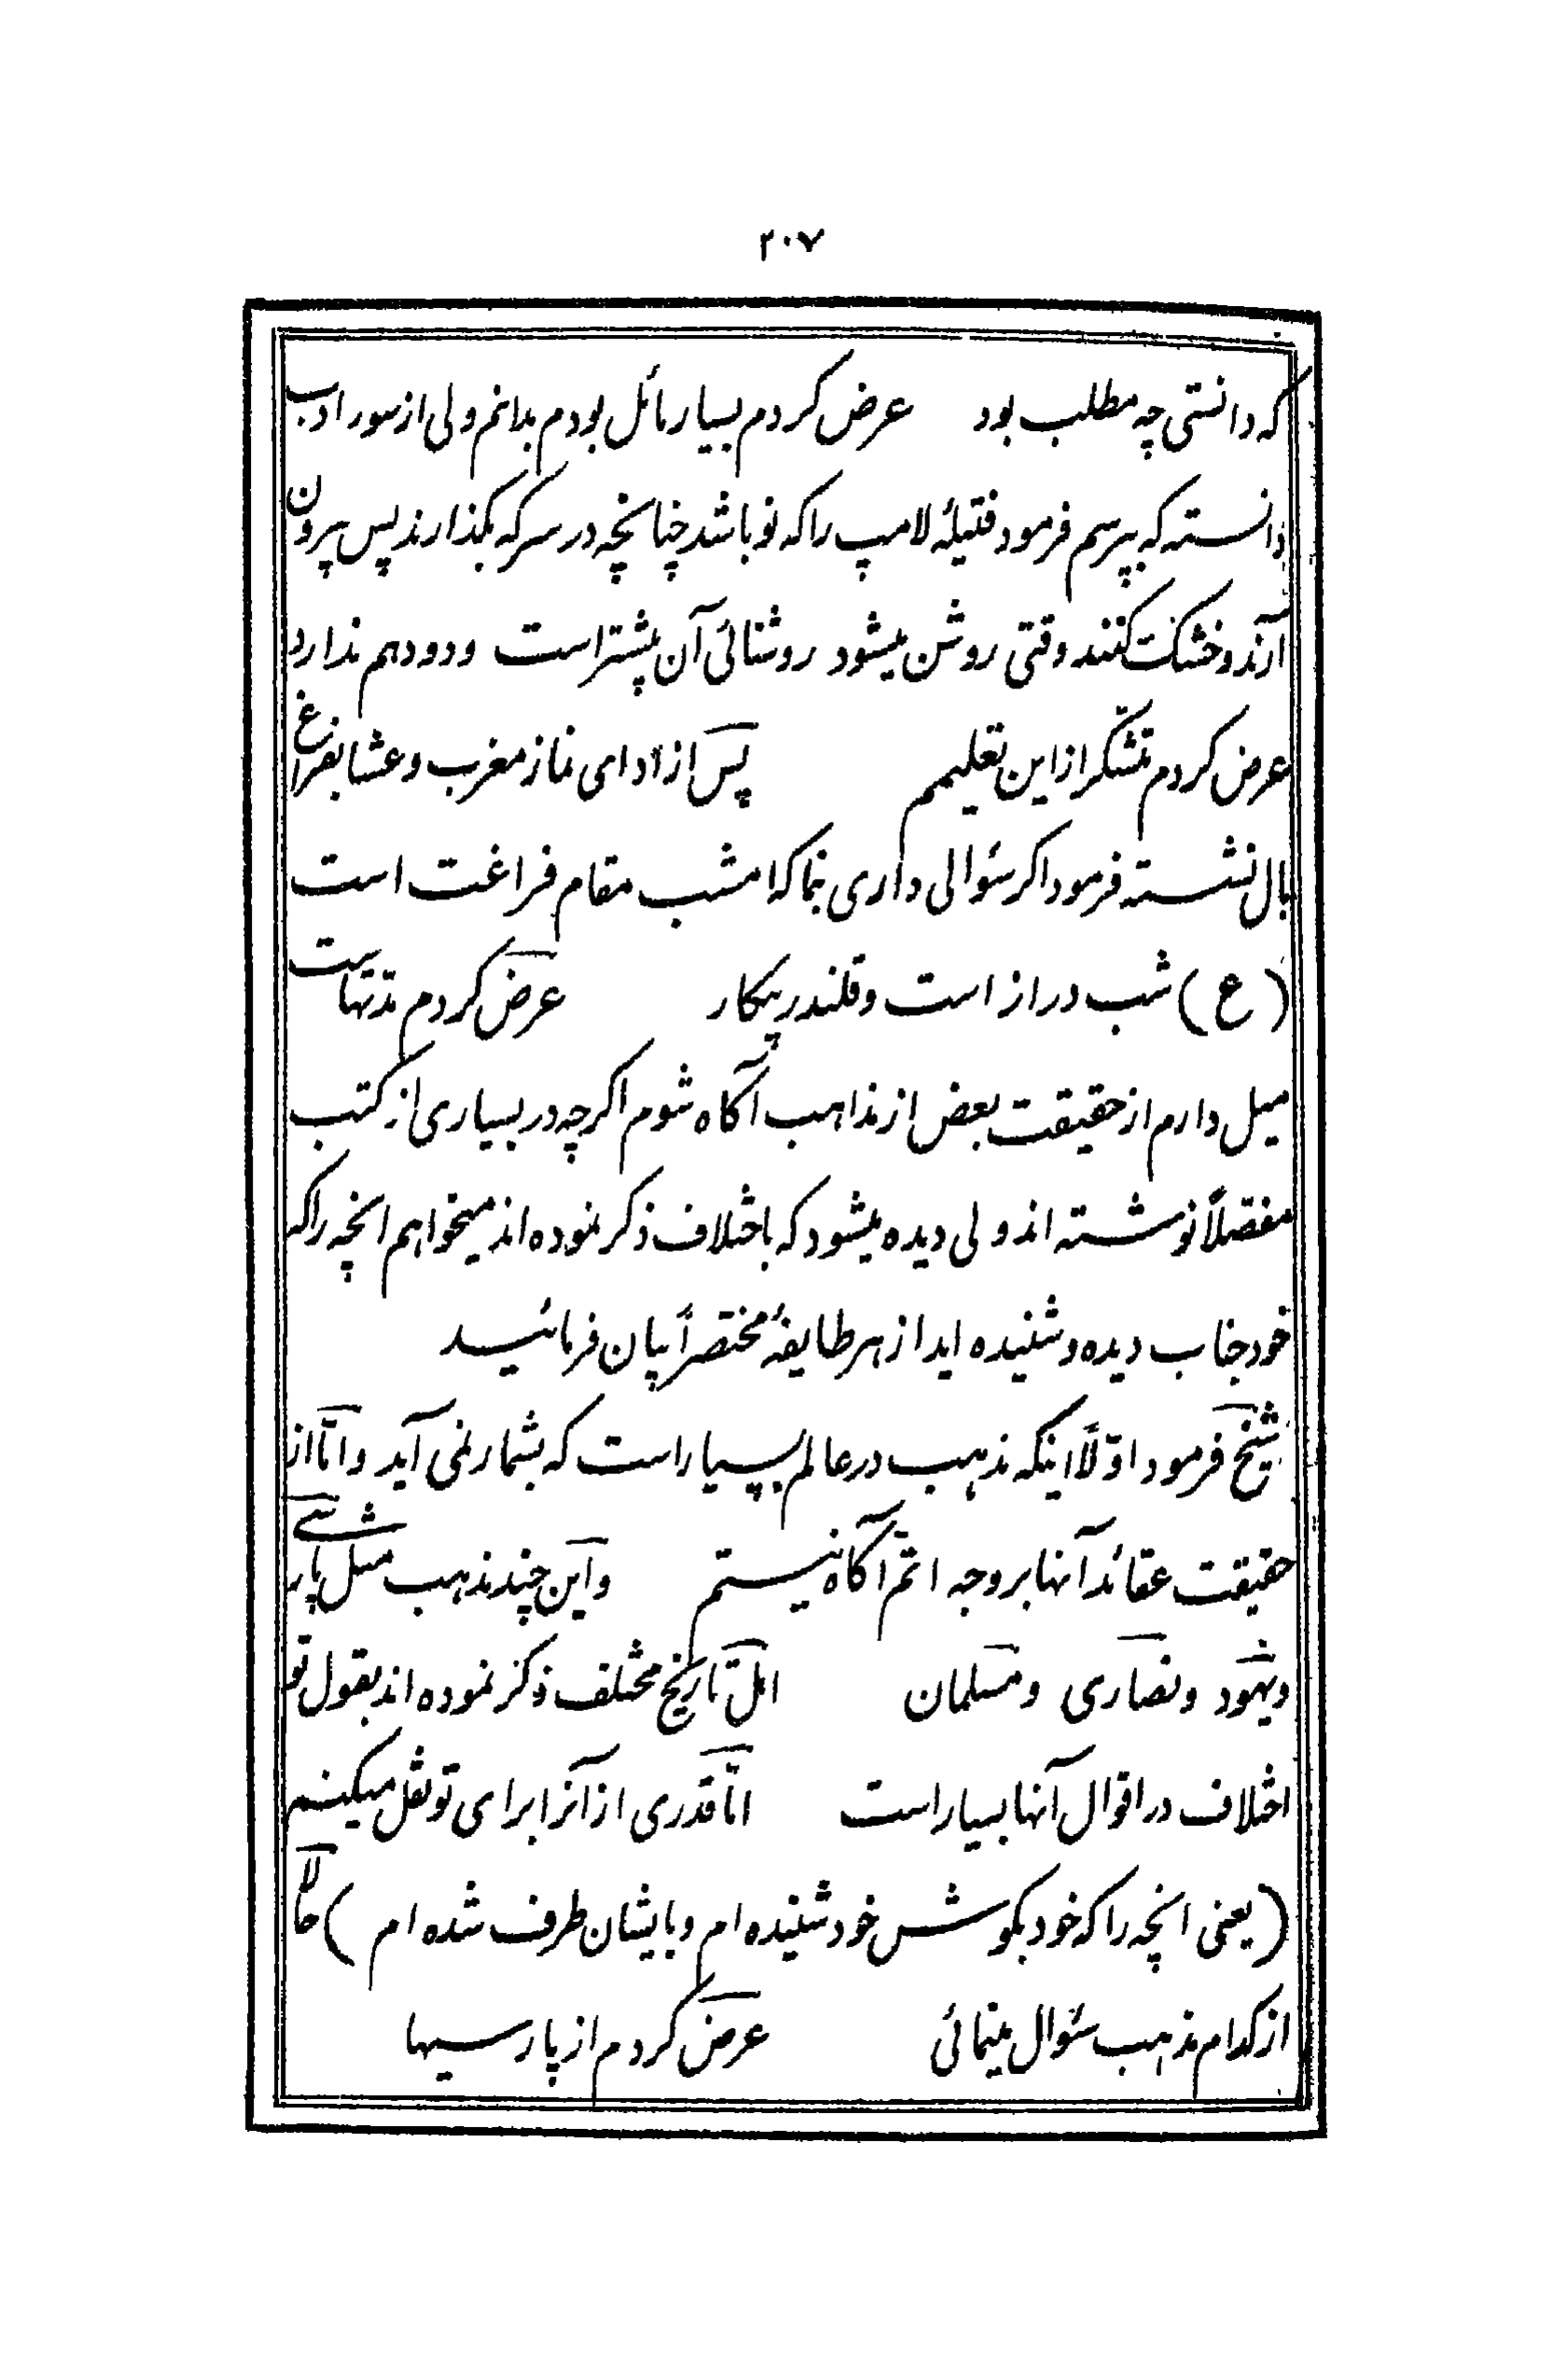 ۲۰۷
که دانستی چه مطلب بود عرض کردم بسیار مائل بودم بدانم ولی از سوء ادب
دانسته که بپرسم فرمود فتیلهٔ لامپ را که نو باشد چنانچه در سرکه بگذارند پس بیرون
آرند و خشک کنند وقتی روشن میشود روشنائی آن بیشتر است و دود هم ندارد
عرض کردم تشکر از این تعلیم پس از ادای نماز مغرب و عشا بفراغ
بال نشسته فرمود اگر سئوالی داری بنما که امشب مقام فراغت است
(ع) شب دراز است و قلندر بیکار عرض کردم مدتهاست
میل دارم از حقیقت بعض از مذاهب آگاه شوم اگرچه در بسیاری از کتب
مفصلاً نوشته اند ولی دیده میشود که باختلاف ذکر نموده اند میخواهم انچه را که
خود جناب دیده و شنیده اید از هر طایفهٔ مختصراً بیان فرمائید
شیخ فرمود اوّلاً اینکه مذهب در عالم بسیار است که بشمار نمی آید و امّا از
حقیقت عقائد آنها بر وجه اتم آگاه نیستم و این چند مذهب مثل پارسی
و یهود و نصاری و مسلمان اهل تاریخ مختلف ذکر نموده اند بقول تو
اختلاف در اقوال آنها بسیار است امّا قدری از آنرا برای تو نقل میکنم
(یعنی انچه را که خود بگوش خود شنیده ام و با یشان طرف شده ام) حالا
از کدام مذهب سئوال مینمائی عرض کردم از پارسیها